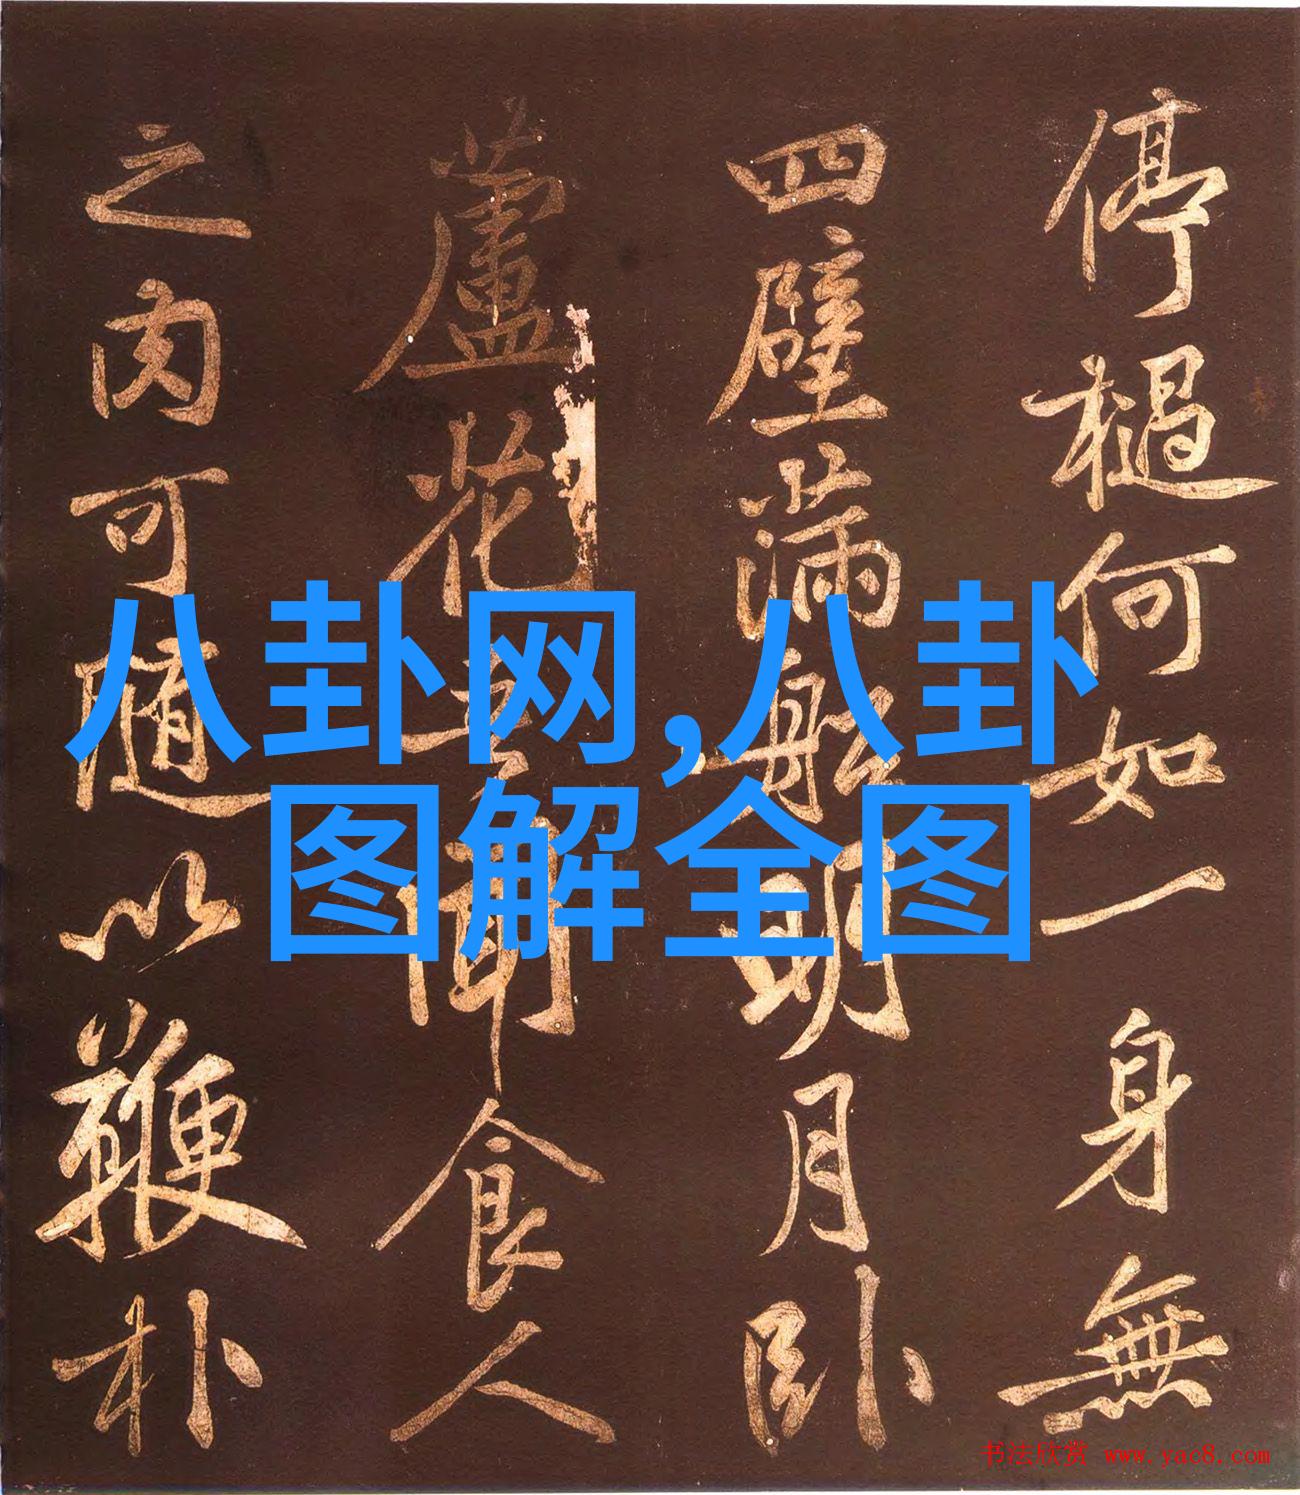 停檛何如一身無
四壁滿船明月臥
蘆花吾聞食人
之肉可隨以鞭朴
八卦网,八卦
图解全图
书法欣赏 www.yac8.com